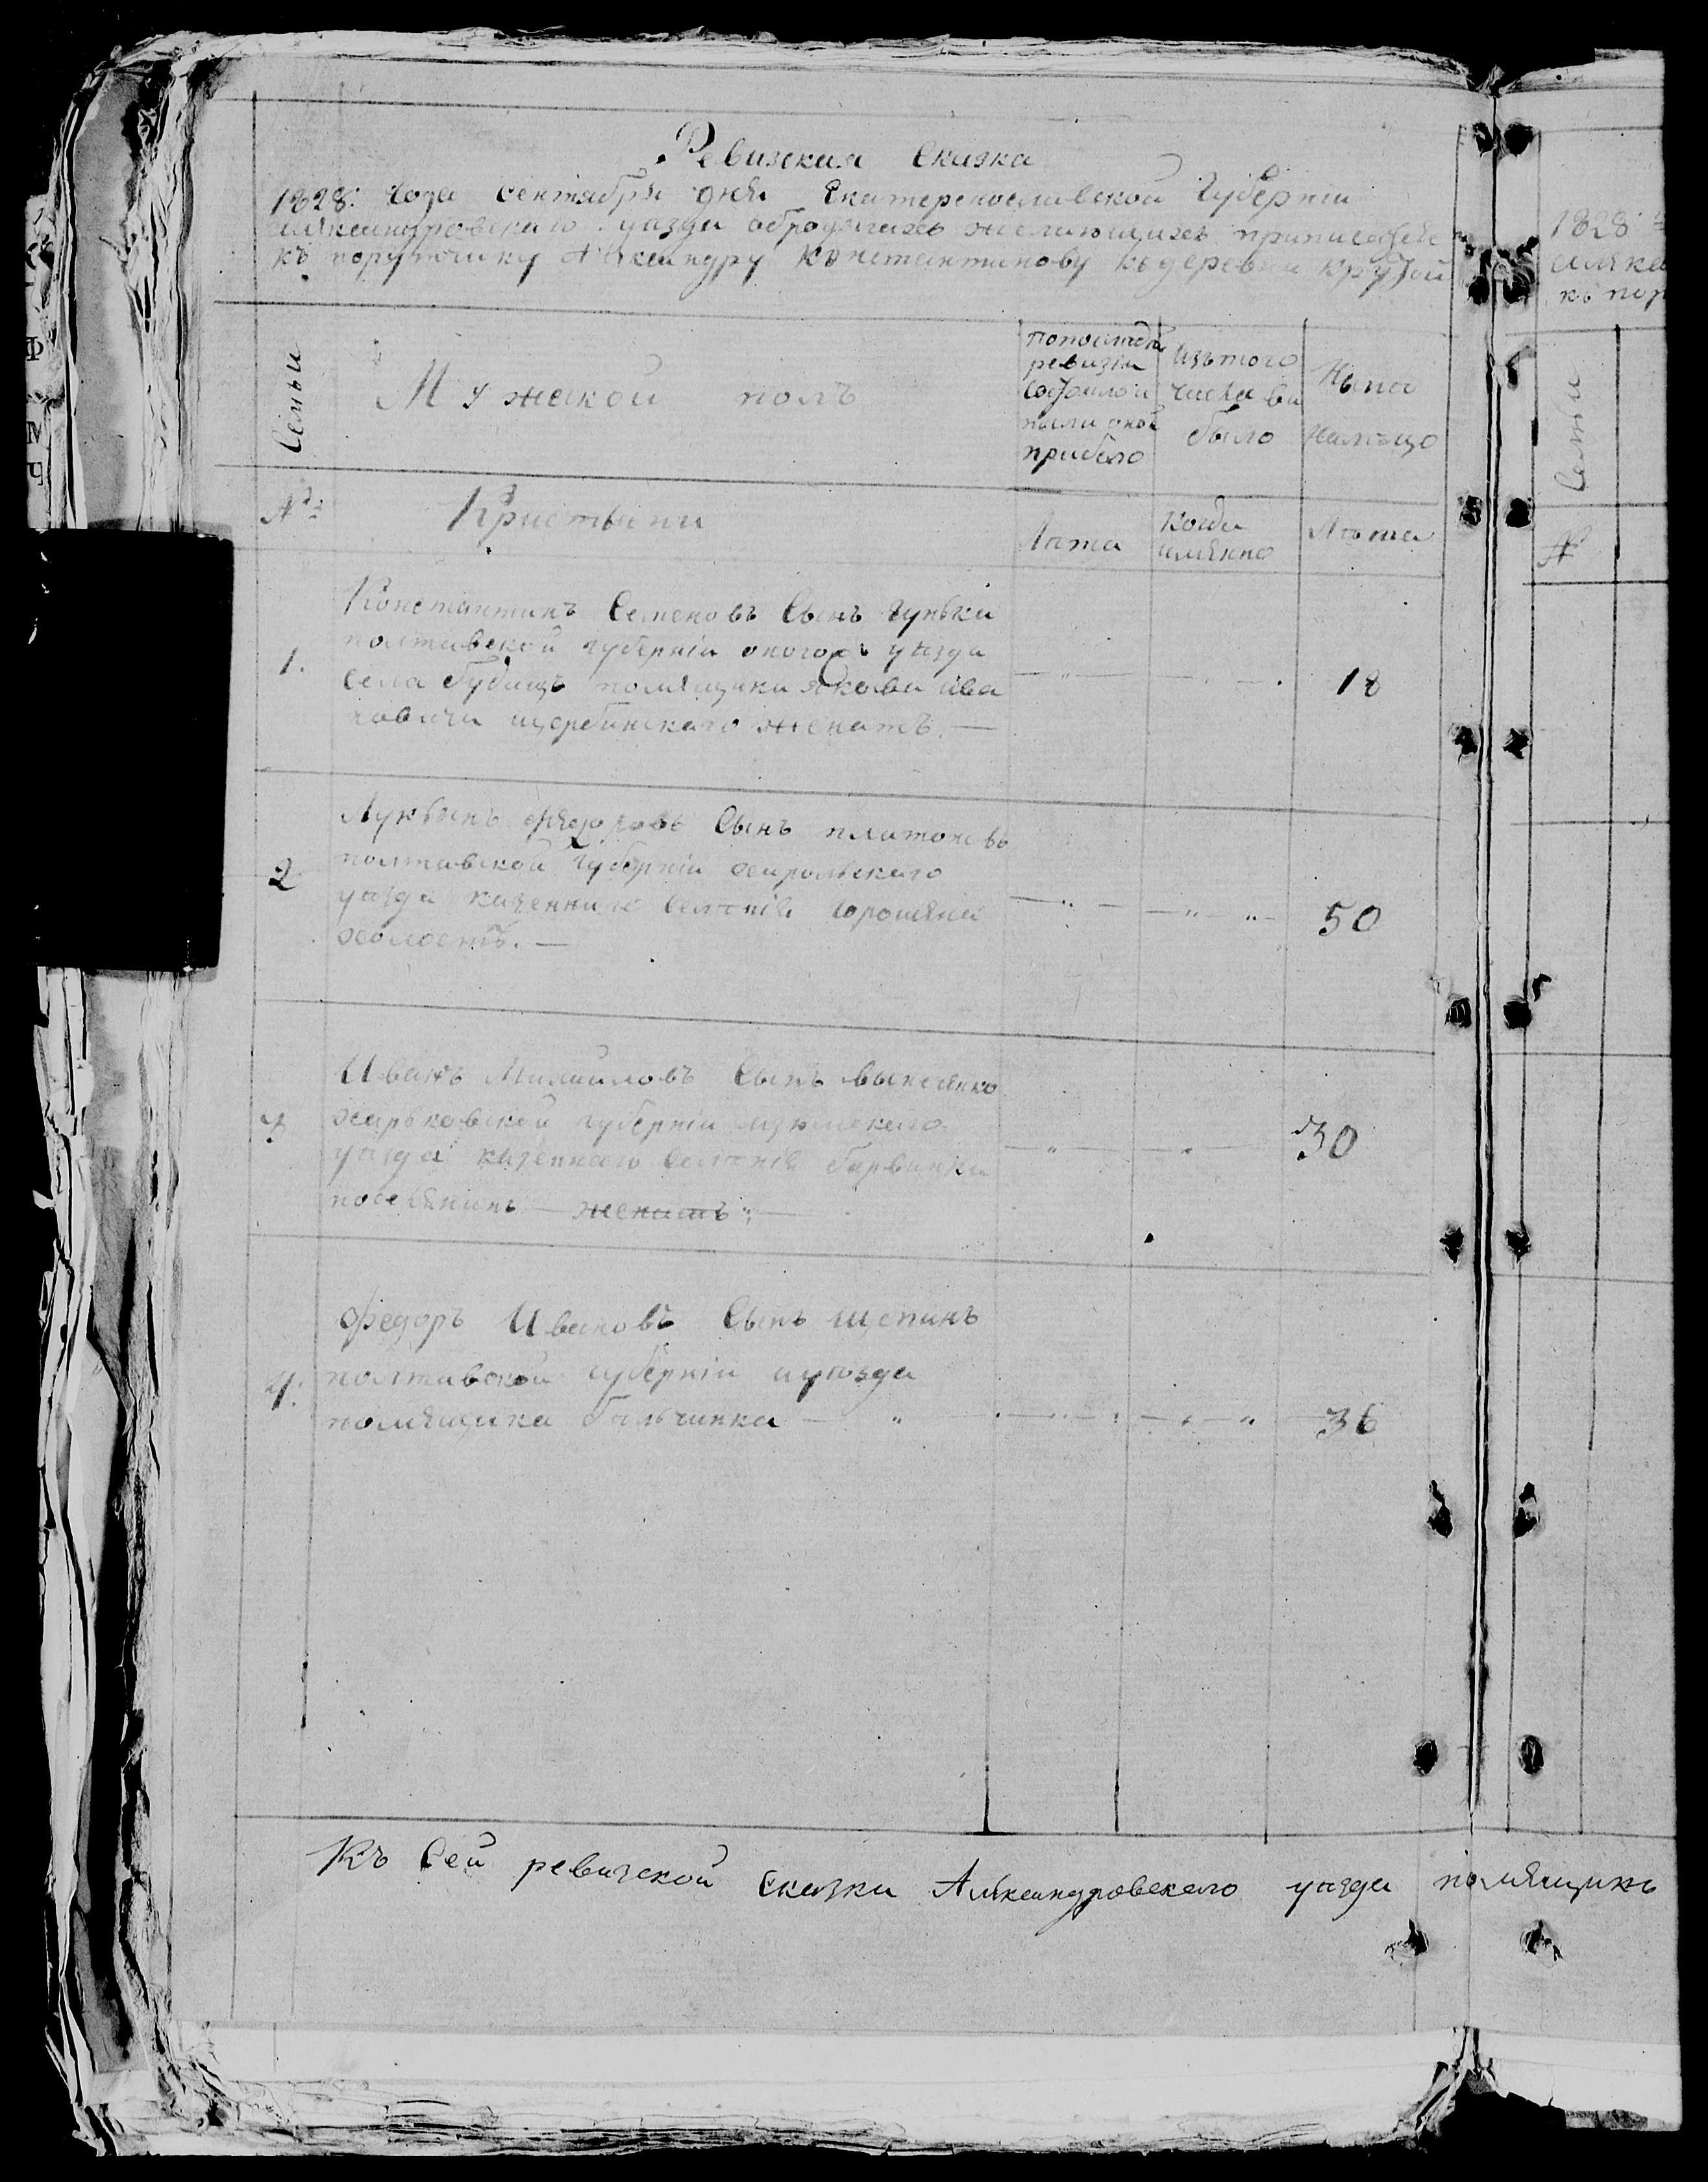 Ревизская Сказка
1828: года Сентября дня Екатеренославской Губерніи
Алѣксандровскаго уѣзда обродягахъ желающихъ приписатся
къ порутчику Алѣксандру Константинову къ деревни Крутой
Семьи
Мужской полъ
попоследней
ревизіи
Состояло и
послѣ оной
прибыло
Изътого
числа вы
было
Нынѣ
Налицо
№
Кристьяни
Лѣта
Когда
имянно
Лѣта
1.
Константинъ Семеновъ Сынъ Гунька
полтавской губерніи оногожъ уѣзда
Села Будищъ помѣщика Якова Ива
новича щербинскаго женатъ. —
18
2
Лукьянъ Федоровъ Сынъ платоновъ
полтавской Губерніи хорольскаго
уѣзда казеннаго Селѣнія Горошина
холостъ. —
50
3
Иванъ Михайловъ Сынъ
харьковской губерніи изюмскаго
уѣзда казенного Селѣнія барвинки
поселянинъ — женатъ: —
30
4.
Федоръ Ивановъ Сынъ щепинъ
полтавской губерніи иуѣзда
помѣщика — "
36
Къ Сей ревизской Сказки Алѣксандровскаго уѣзда помѣщикъ
1828:
къ пор
Семьи
№